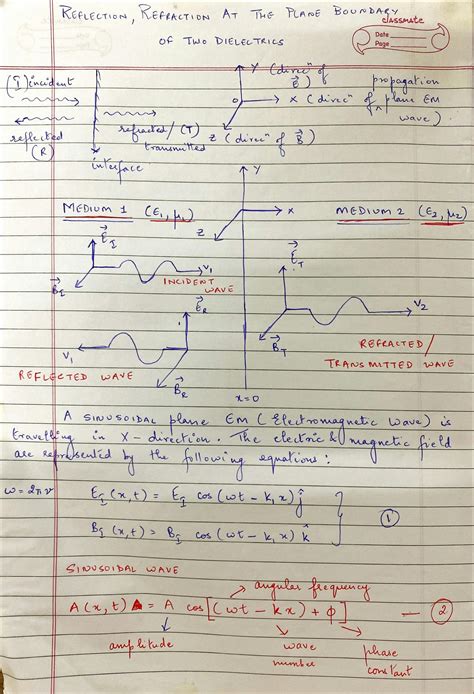 REFLECTION, REFRACTION AT THE PLANE BOUNDARY
OF TWO DIELECTRICS
classmate
Date
Page
(I) incident
reflected
(R)
refracted/(T)
transmitted
interface
Y (direcⁿ of E⃗)
O
X (direcⁿ of propagation of plane EM wave)
Z (direcⁿ of B⃗)
Y
X
Z
MEDIUM 1 (ε₁, μ₁)
MEDIUM 2 (ε₂, μ₂)
E⃗_I
B⃗_I
V₁
INCIDENT
WAVE
E⃗_R
V₁
B⃗_R
REFLECTED WAVE
E⃗_T
V₂
B⃗_T
REFRACTED/
TRANSMITTED WAVE
x=0
A SINUSOIDAL PLANE EM (Electromagnetic Wave) is
travelling in X-direction. The electric & magnetic field
are represented by the following equations:
ω=2πν
E_I (x,t) = E_I cos(ωt - k₁x) ĵ
B_I (x,t) = B_I cos (ωt - k₁x) k̂
①
SINUSOIDAL WAVE
angular frequency
A(x,t) = A cos[(ωt - kx) + φ] — ②
amplitude
wave
number
phase
constant